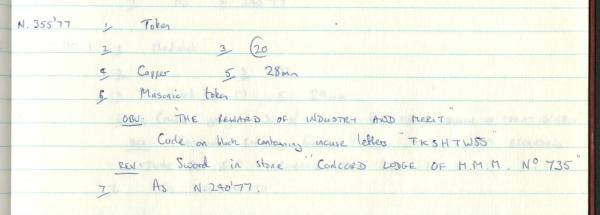 N. 355'77 1 Token
2 3 (20
4 Copper 5 28mm
6 Masonic token
OBV. "THE REWARD OF INDUSTRY AND MERIT"
Circle on block containing incuse letters "TKSHTWSS"
REV. Sword in stone "CONCORD LODGE OF M.M.M. No 735"
7 As N.240'77.